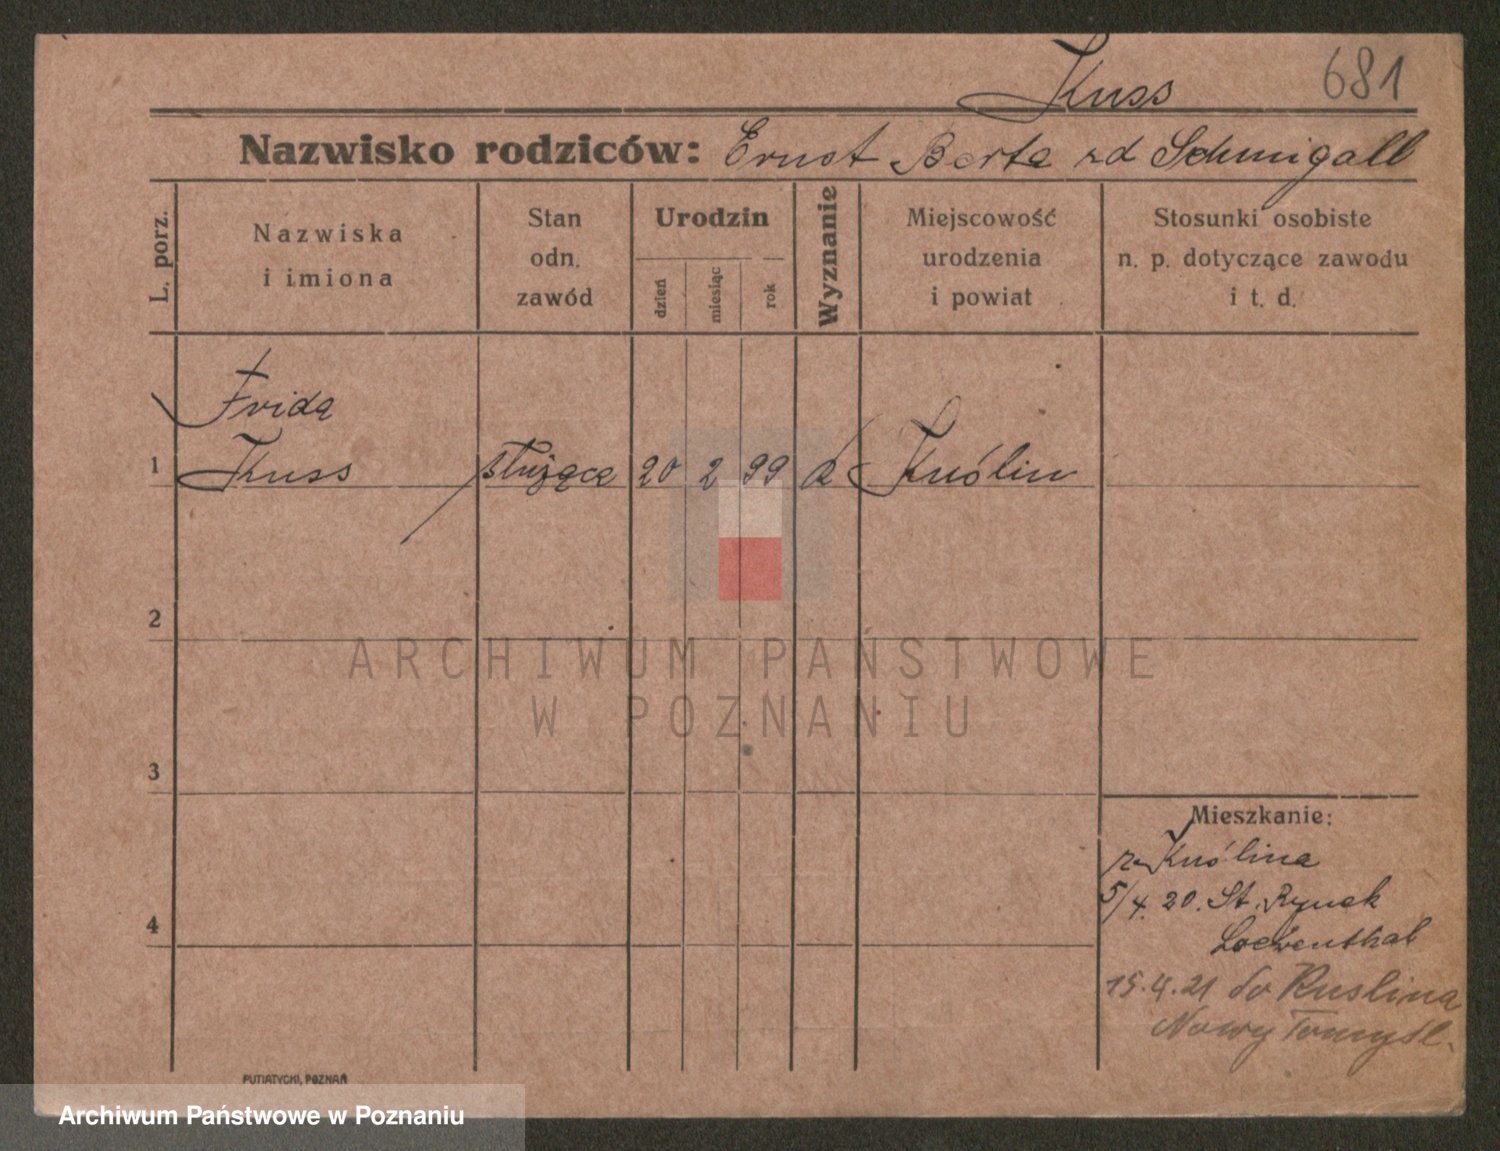 Kuss 681
Nazwisko rodziców: Ernst Berta zd Schmigall
L. porz.
Nazwiska
i imiona
Stan
odn.
zawód
Urodzin
dzień
miesiąc
rok
Wyznanie
Miejscowość
urodzenia
i powiat
Stosunki osobiste
n. p. dotyczące zawodu
i t. d.
Frida
1 Kuss służąca 20 2 99 Kuślin
2
ARCHIWUM PAŃSTWOWE
W POZNANIU
3
Mieszkanie:
z Kuślina
5/4. 20. St. Rynek
4
Loewenthal
15.4.21 do Kuślina
Nowy Tomyśl.
PUTIATYCKI, POZNAŃ
Archiwum Państwowe w Poznaniu